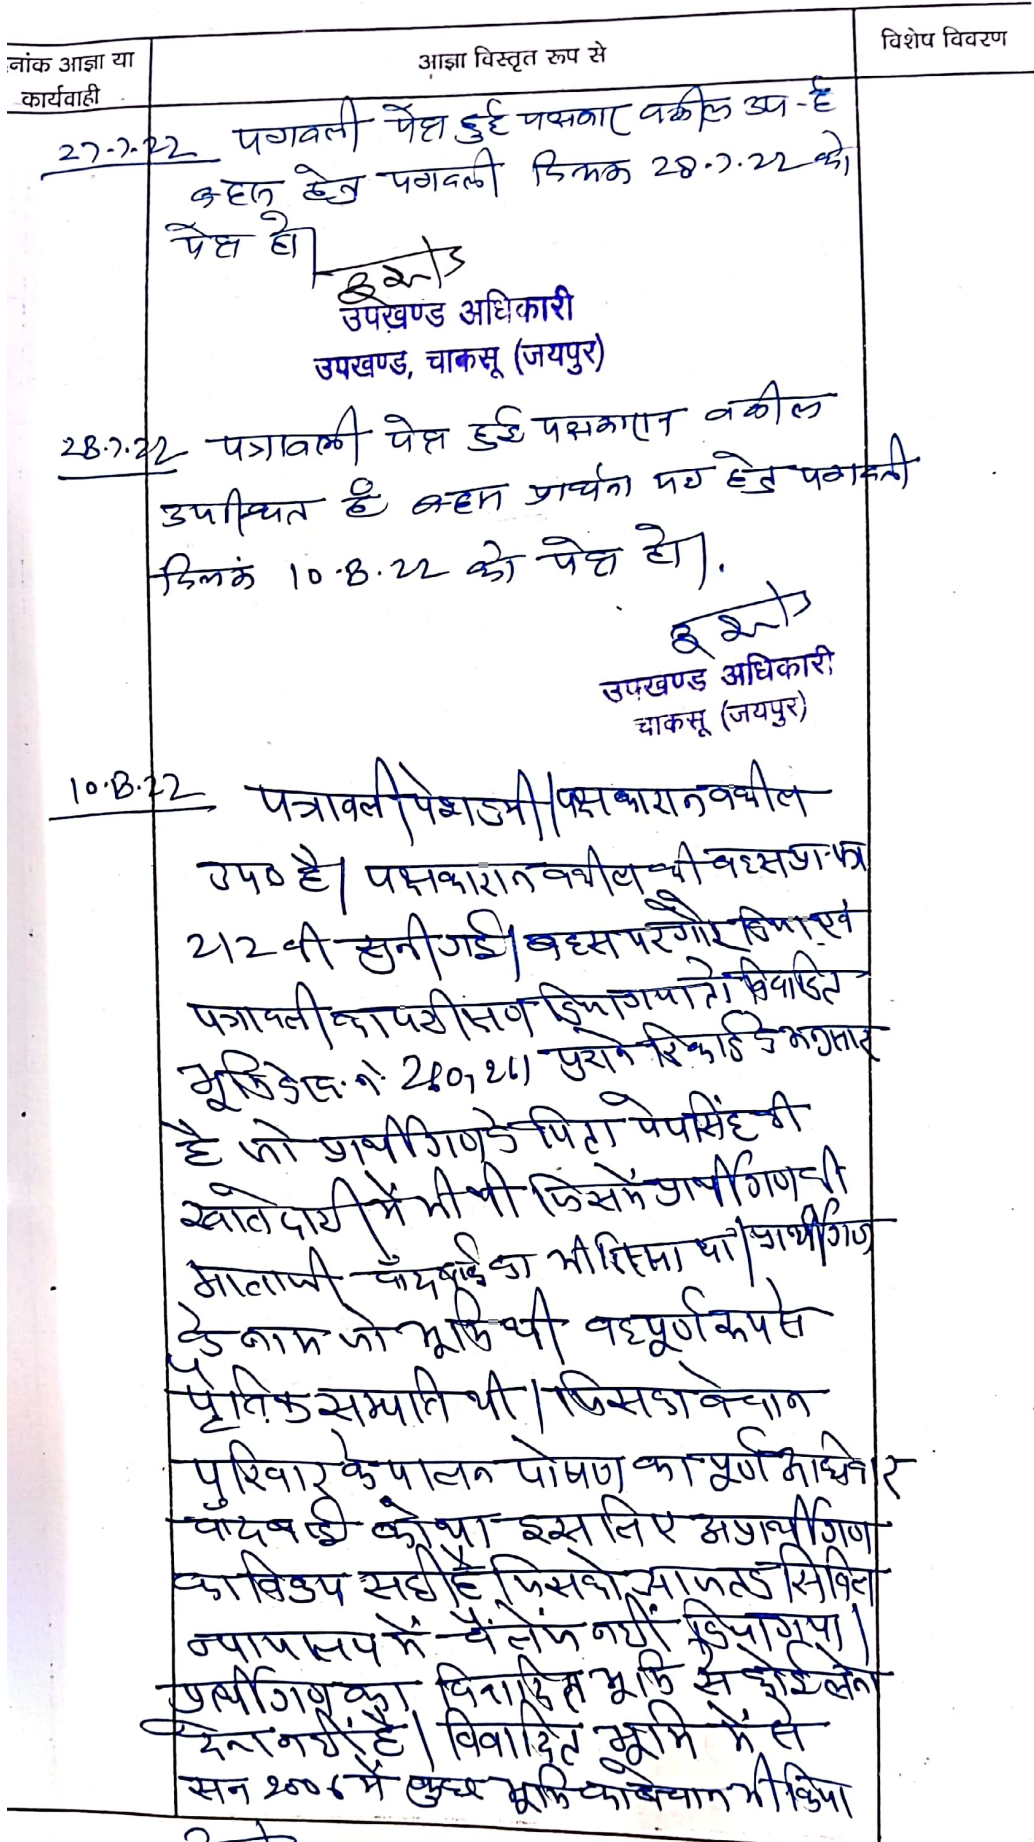 नांक आज्ञा या
कार्यवाही
आज्ञा विस्तृत रूप से
विशेष विवरण
27.7.22 पत्रावली पेश हुई पक्षकार वकील उप-है
बहस हेतु पत्रावली दिनांक 28.7.22 को
पेश हो।
उपखण्ड अधिकारी
उपखण्ड, चाकसू (जयपुर)
28.7.22 पत्रावली पेश हुई पक्षकारान वकील
उपस्थित है बहस प्रार्थना पत्र हेतु पत्रावली
दिनांक 10.8.22 को पेश हो।.
उपखण्ड अधिकारी
चाकसू (जयपुर)
10.8.22 पत्रावली पेश हुयी। पक्षकारान वकील
उप० है। पक्षकारान वकील की बहस प्रा.पत्र
212 की सुनी गई। बहस पर गौर किया एवं
पत्रावली का परीक्षण किया गया तो विवादित
भूमि के ख.नं. 260, 261 पुराने रिकार्ड के अनुसार
है जो प्रार्थीगण के पिता पेपसिंह की
खातेदारी में भी थी जिसमें प्रार्थीगण की
माताजी चाँदबाई का भी हिस्सा था। प्रार्थीगण
के नाम जो भूमि थी वह पूर्ण रूप से
पैतृिक सम्पति थी। जिसका बेचान
परिवार के पालन पोषण का पूर्ण अधिकार
चांदबाई को था इसलिए अप्रार्थीगण
का विक्रय सही है जिसको आजतक सिविल
न्यायालय में चैलेंज नहीं किया गया।
प्रार्थीगण का विवादित भूमि से कोई लेना
देना नहीं है। विवादित भूमि में से
सन 2006 में कुछ भूमि का बेचान भी किया